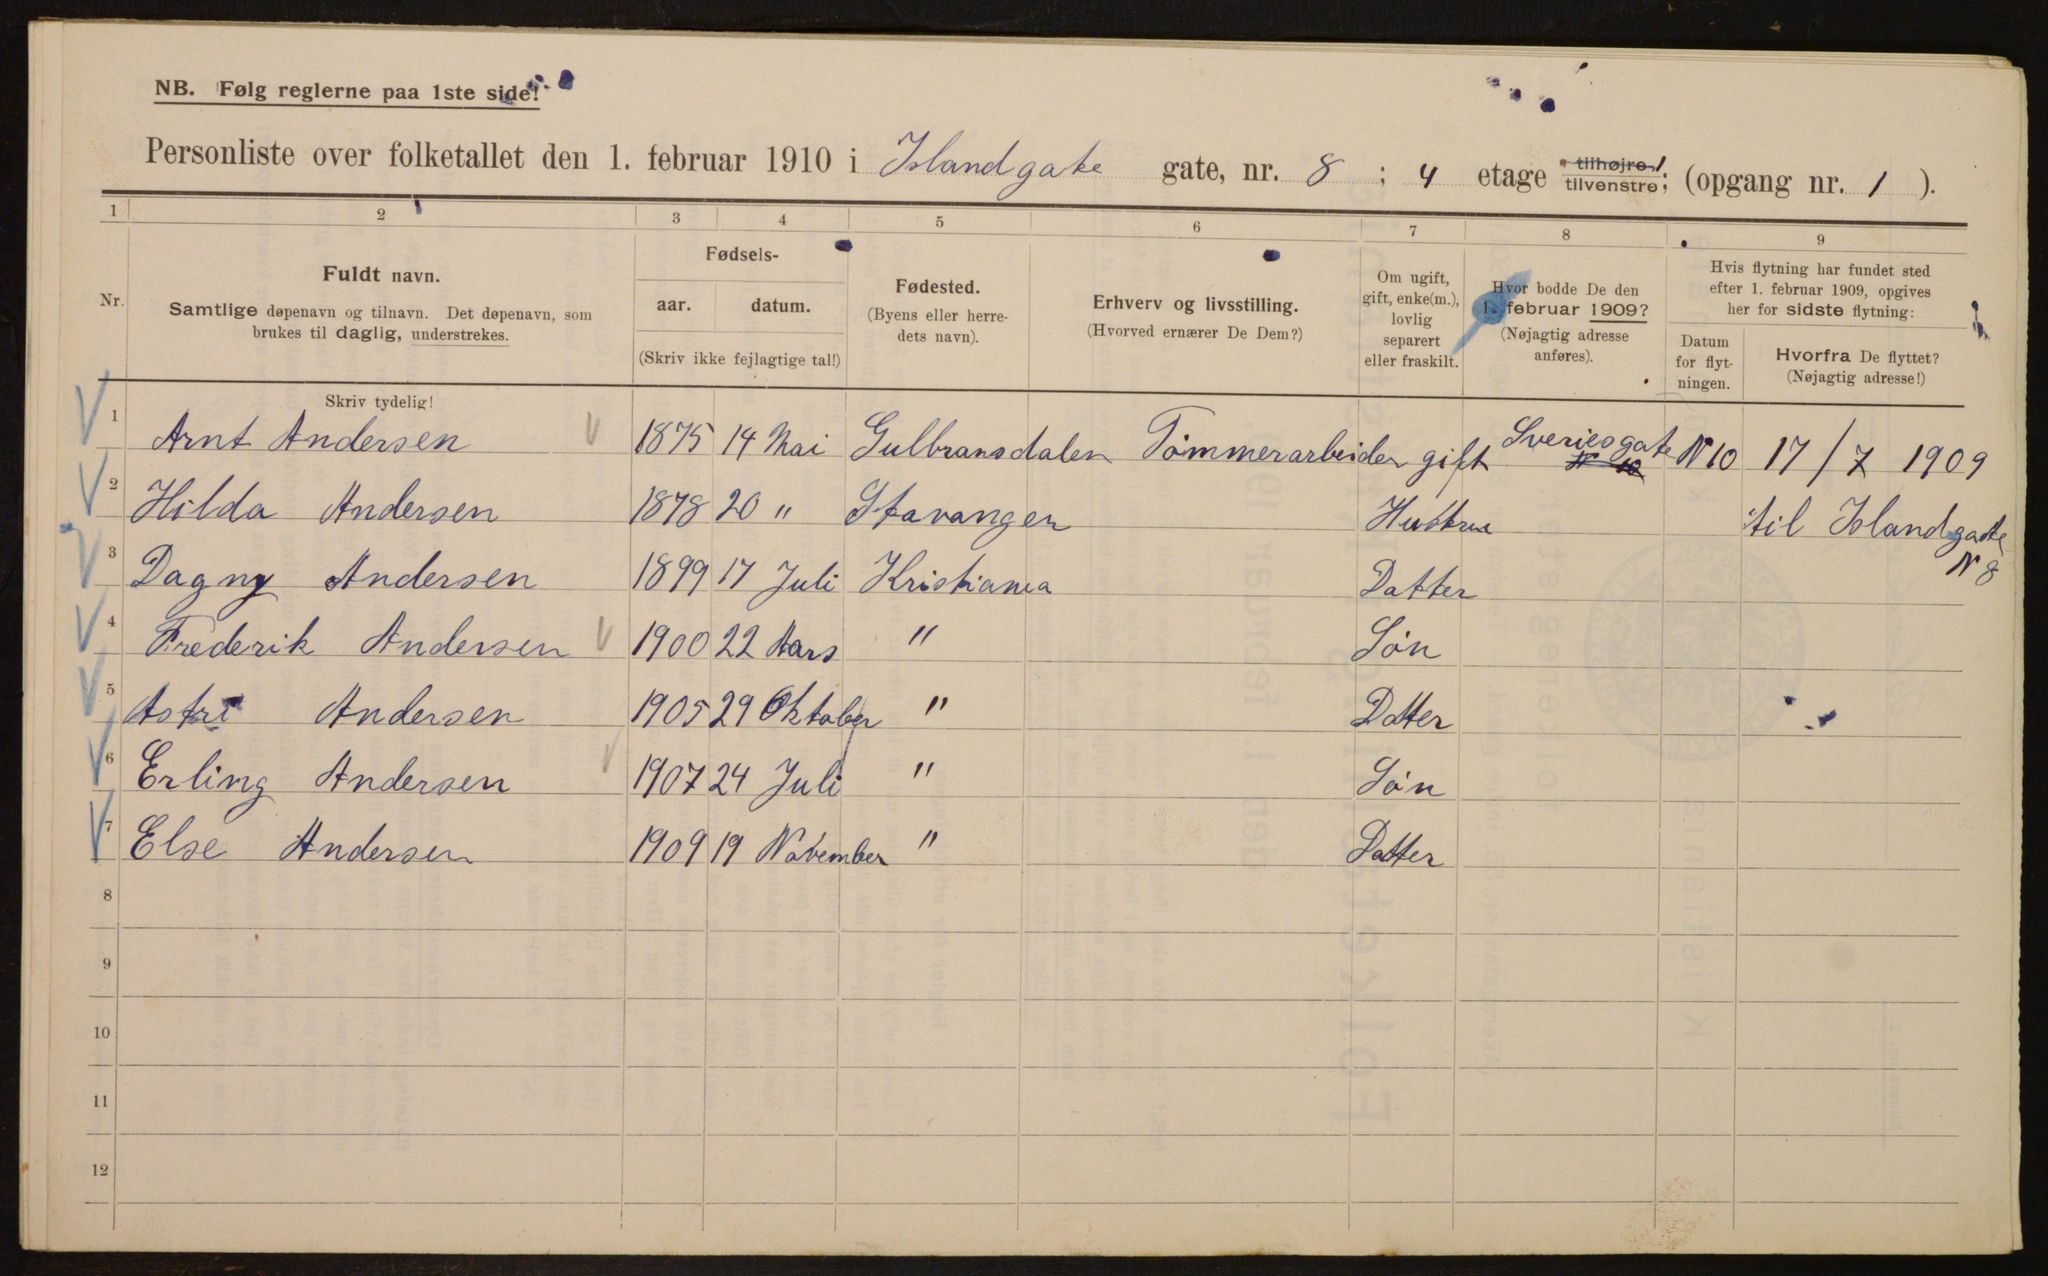 NB. Følg reglerne paa 1ste side!
Personliste over folketallet den 1. februar 1910 i Islandgate gate, nr. 8 ; 4 etage tilhøjre / tilvenstre; (opgang nr. 1 ).
1 2 3 4 5 6 7 8 9
Nr.
Fuldt navn.
Samtlige døpenavn og tilnavn. Det døpenavn, som
brukes til daglig, understrekes.
Skriv tydelig!
Fødsels-
aar. datum.
(Skriv ikke fejlagtige tal!)
Fødested.
(Byens eller herre-
dets navn).
Erhverv og livsstilling.
(Hvorved ernærer De Dem?)
Om ugift,
gift, enke(m.),
lovlig
separert
eller fraskilt.
Hvor bodde De den
1. februar 1909?
(Nøjagtig adresse
anføres).
Hvis flytning har fundet sted
efter 1. februar 1909, opgives
her for sidste flytning:
Datum
for flyt-
ningen.
Hvorfra De flyttet?
(Nøjagtig adresse!)
1 Arnt Andersen 1875 14 Mai Gulbransdalen Tømmerarbeider gift Sveriesgate N 10 17/7 1909
2 Hilda Andersen 1878 20 " Stavanger Hustru til Islandgate
N 8
3 Dagny Andersen 1899 17 Juli Kristiania Datter
4 Frederik Andersen 1900 22 Mars " Søn
5 Astri Andersen 1905 29 Oktober " Datter
6 Erling Andersen 1907 24 Juli " Søn
7 Else Andersen 1909 19 November " Datter
8
9
10
11
12